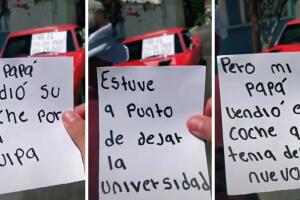 PAPÁ
DIÓ SU
CHE POR
LA
UIPA
Estuve
a Punto
de dejar
la
universidad
Pero mi
PAPÁ
vendió e
coche q
tenía de
nuevo